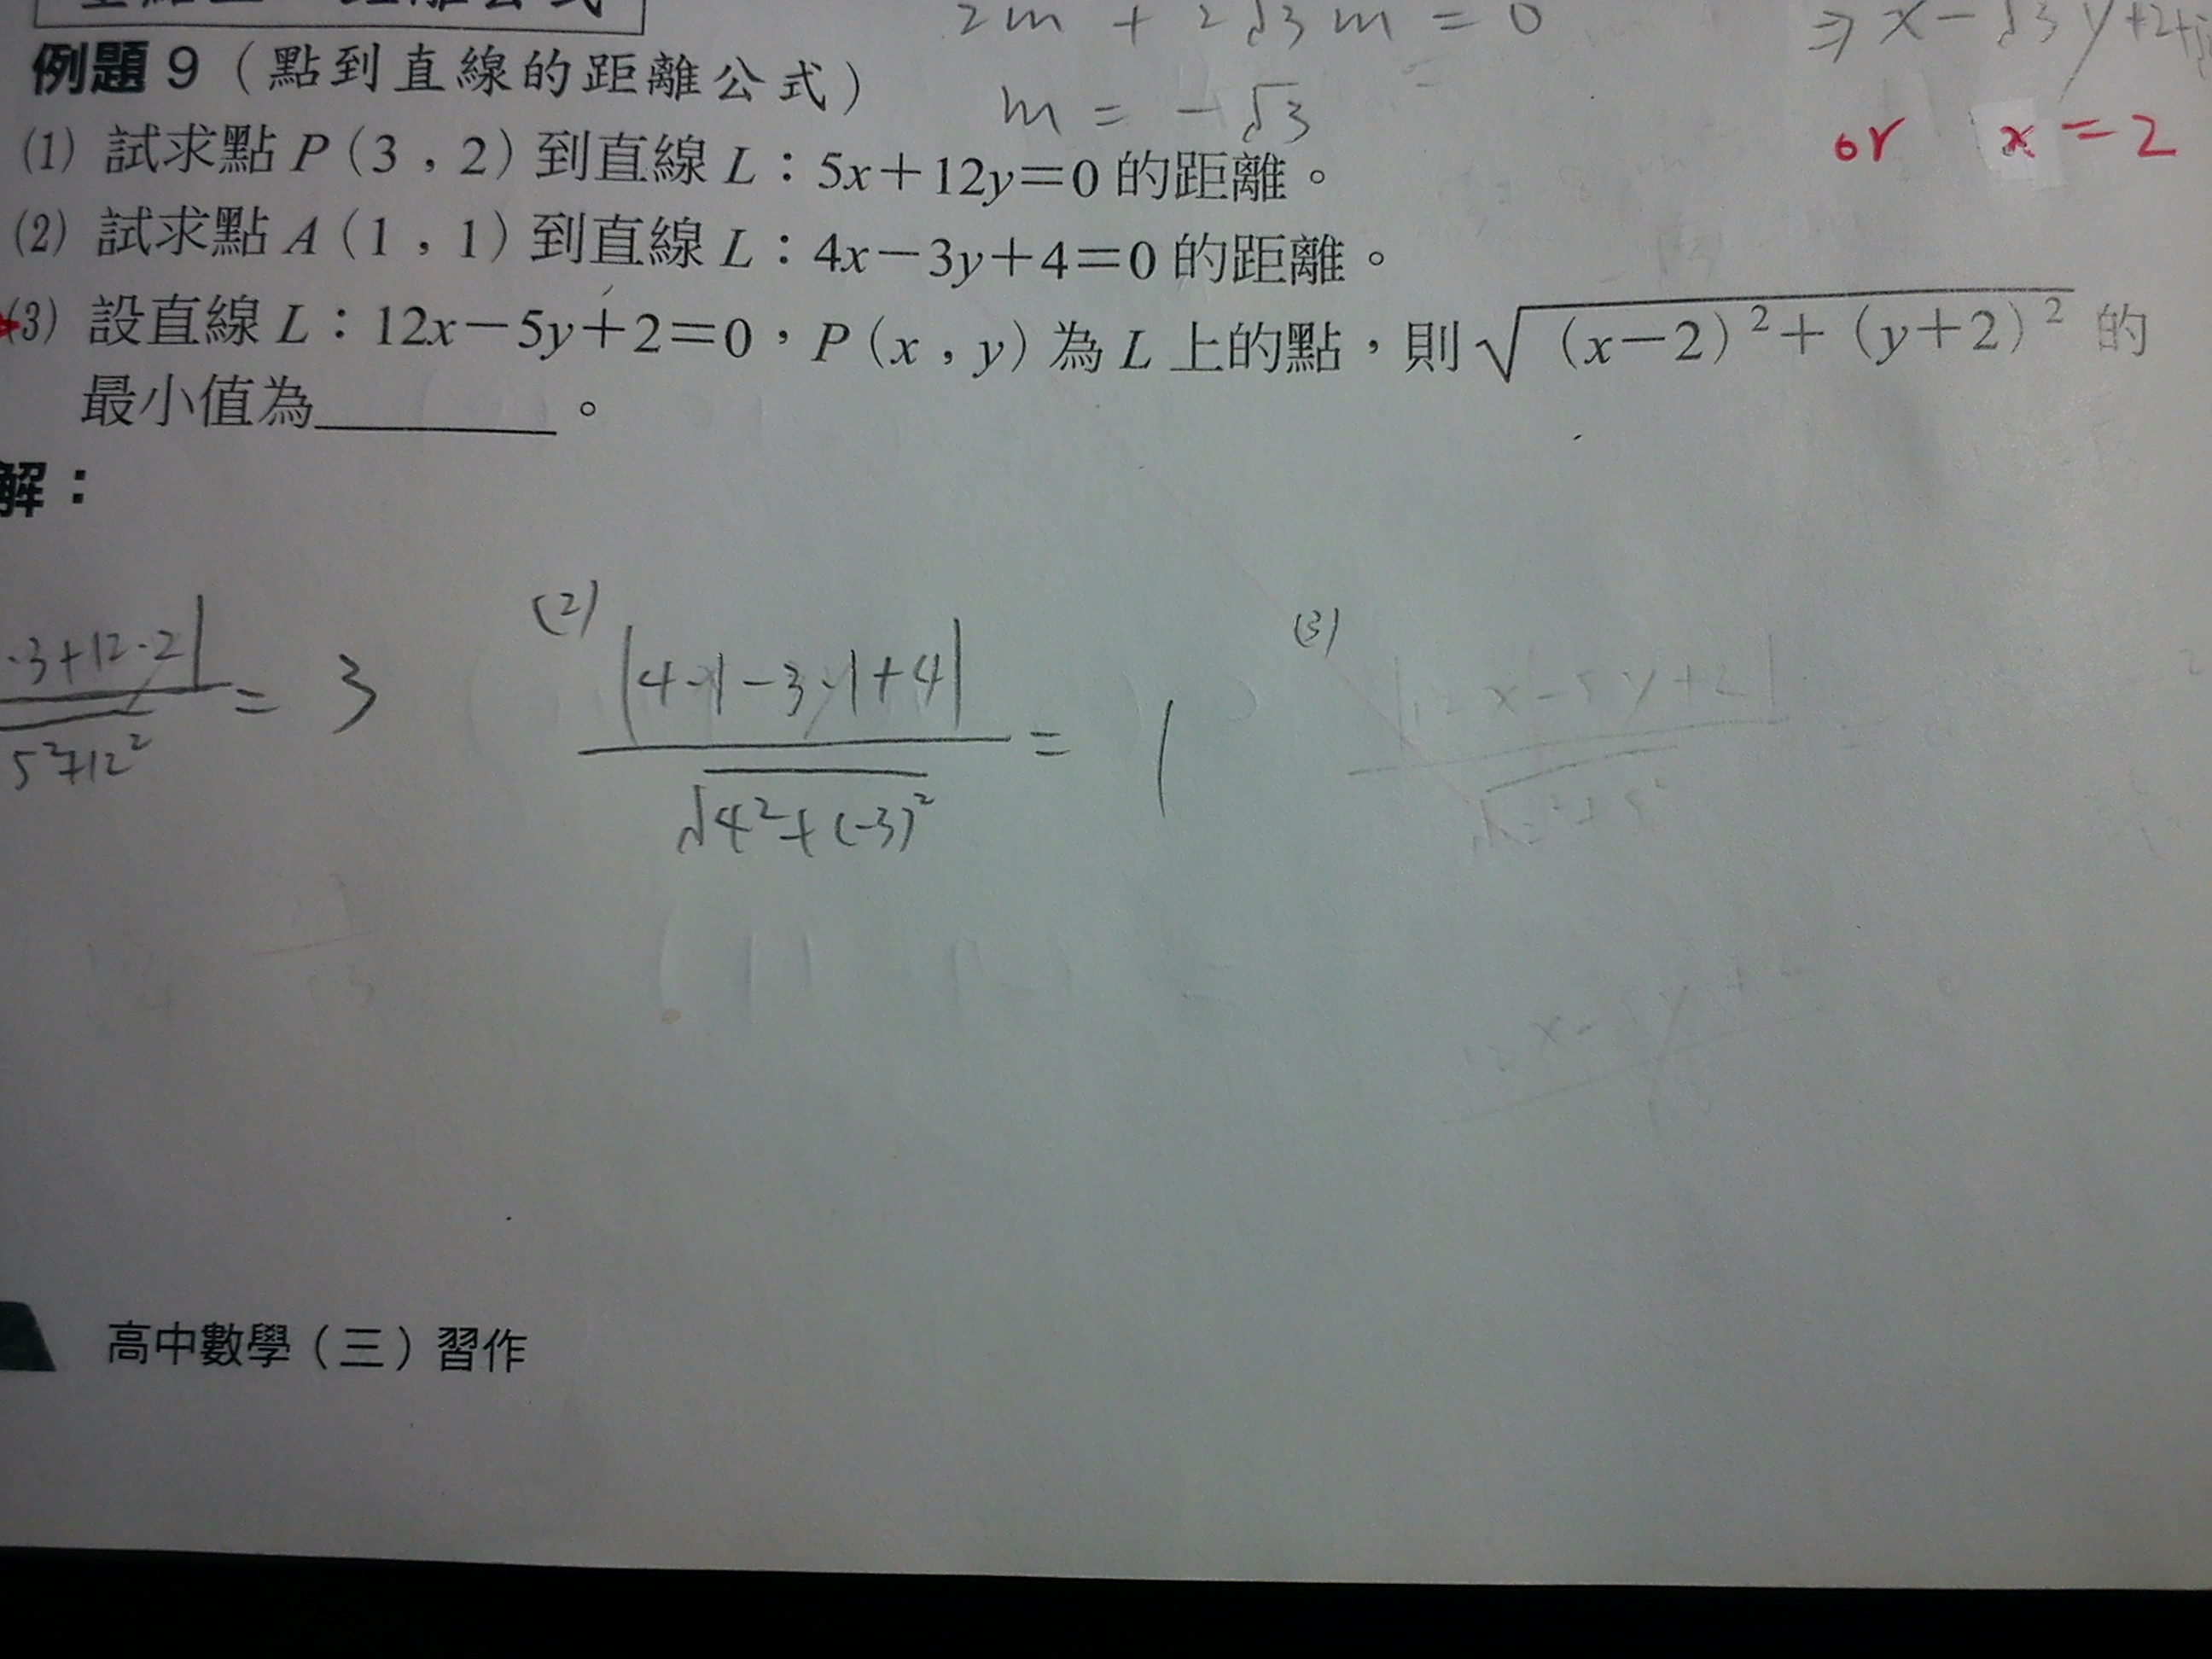 2m + 2√3m = 0
⇒ x-√3y+2+
例題 9（點到直線的距離公式）
m = -√3
or x=2
(1) 試求點 P（3，2）到直線 L：5x＋12y＝0 的距離。
(2) 試求點 A（1，1）到直線 L：4x－3y＋4＝0 的距離。
(3) 設直線 L：12x－5y＋2＝0，P（x，y）為 L 上的點，則 √(x－2)²＋(y＋2)² 的
最小值為________。
解：
·3+12·2|
5²+12²
= 3
(2)
|4·1-3·1+4|
√4²+(-3)²
= 1
(3)
|12x-5y+2|
高中數學（三）習作